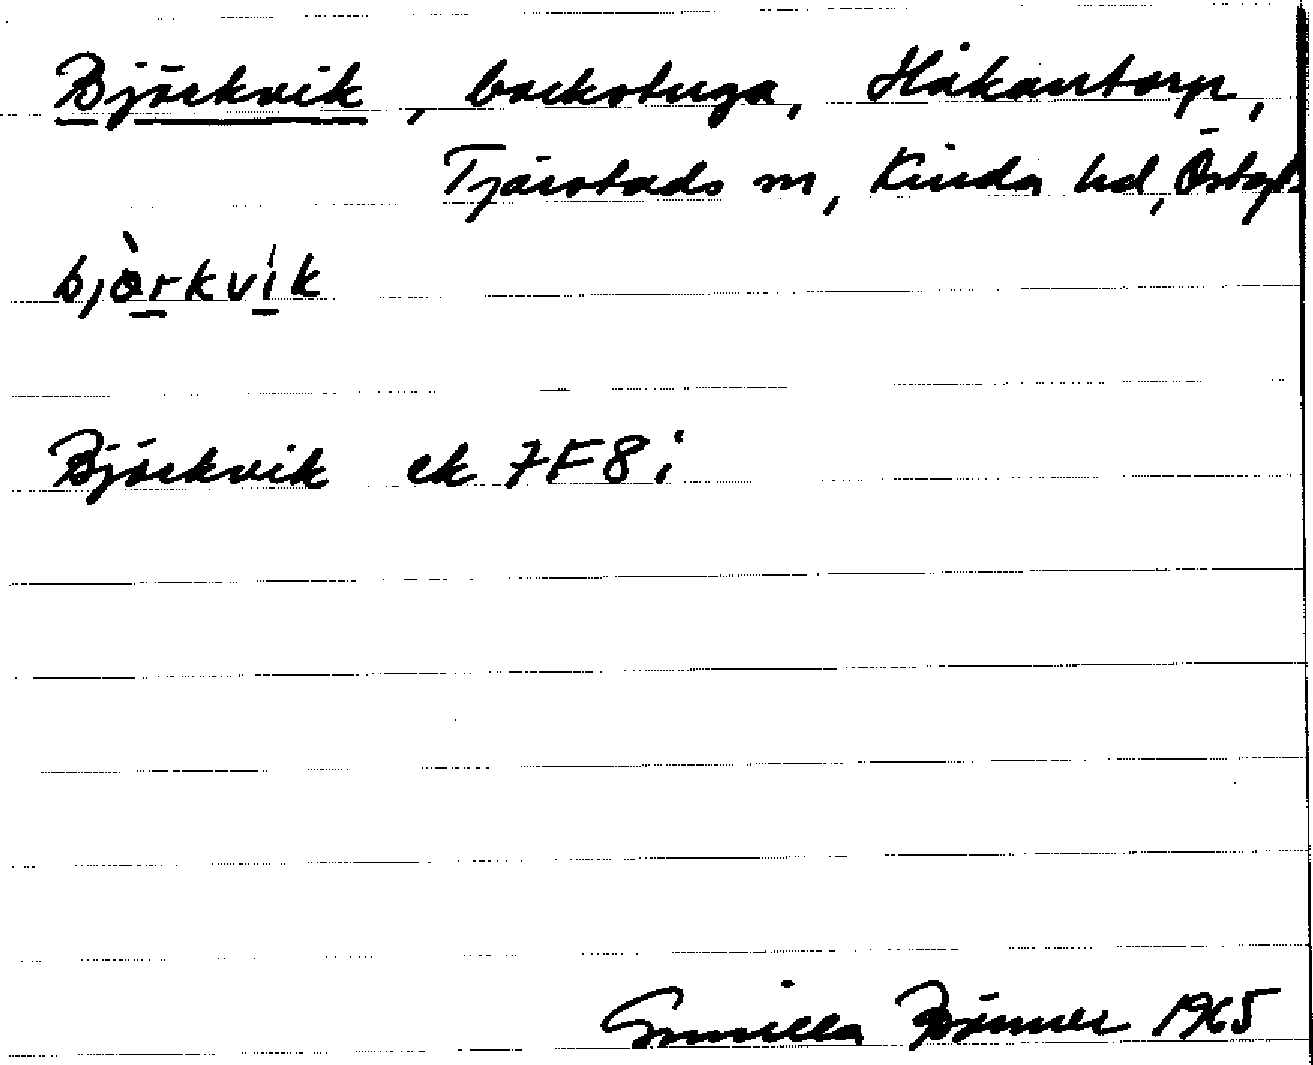 Björkvik, backstuga, Håkantorp,
Tjärstads sn, Kinda hd, Östgl
bjò̱rkvi̱k
Björkvik ek 7F8i
Gunilla Brömer 1965